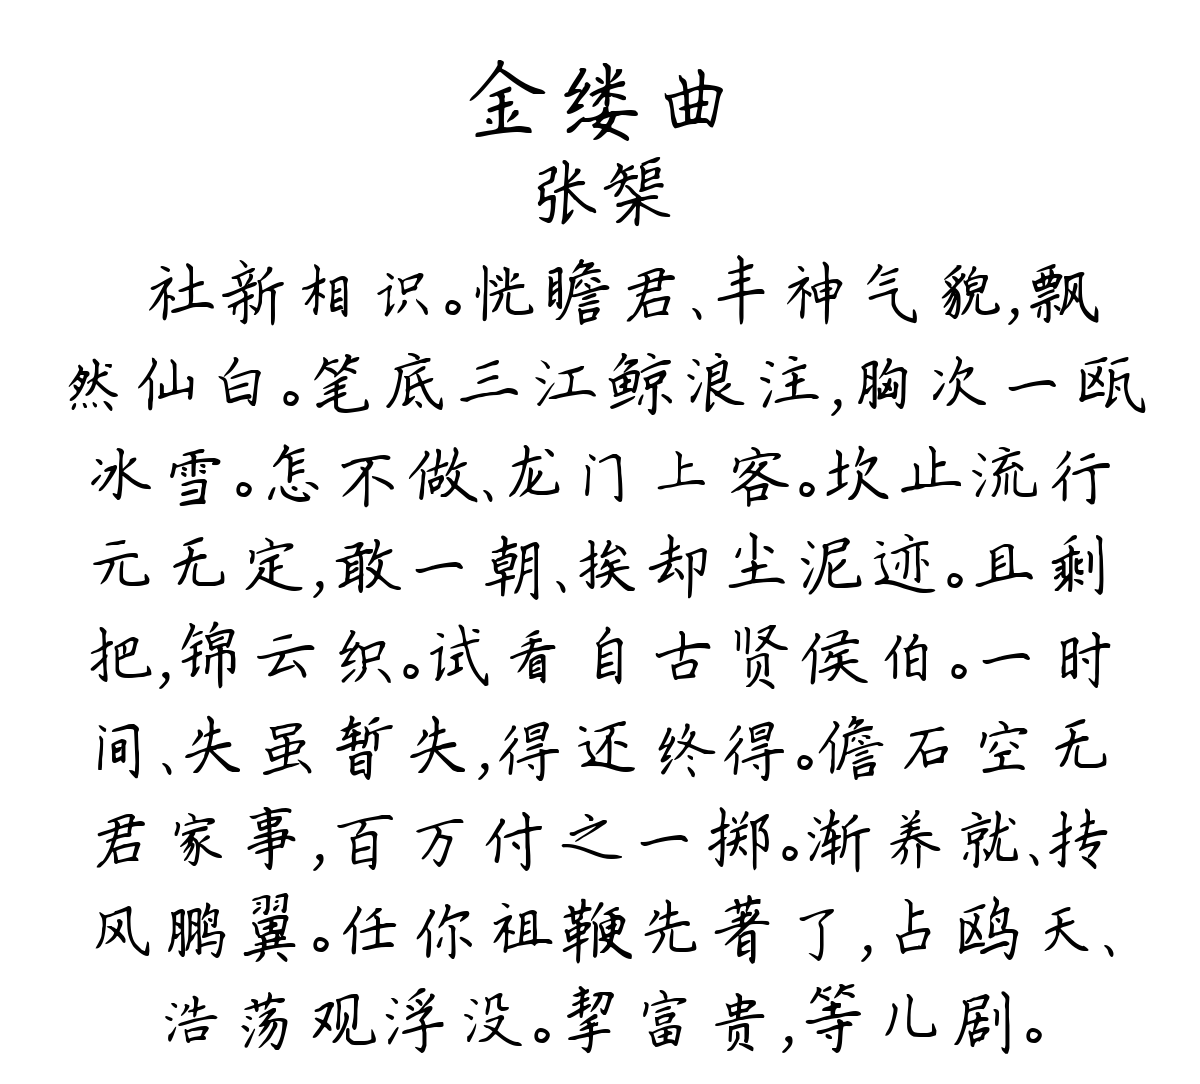 金缕曲
张榘
社新相识。恍瞻君、丰神气貌,飘
然仙白。笔底三江鲸浪注,胸次一瓯
冰雪。怎不做、龙门上客。坎止流行
元无定,敢一朝、挨却尘泥迹。且剩
把,锦云织。试看自古贤侯伯。一时
间、失虽暂失,得还终得。儋石空无
君家事,百万付之一掷。渐养就、抟
风鹏翼。任你祖鞭先著了,占鸥天、
浩荡观浮没。挈富贵,等儿剧。